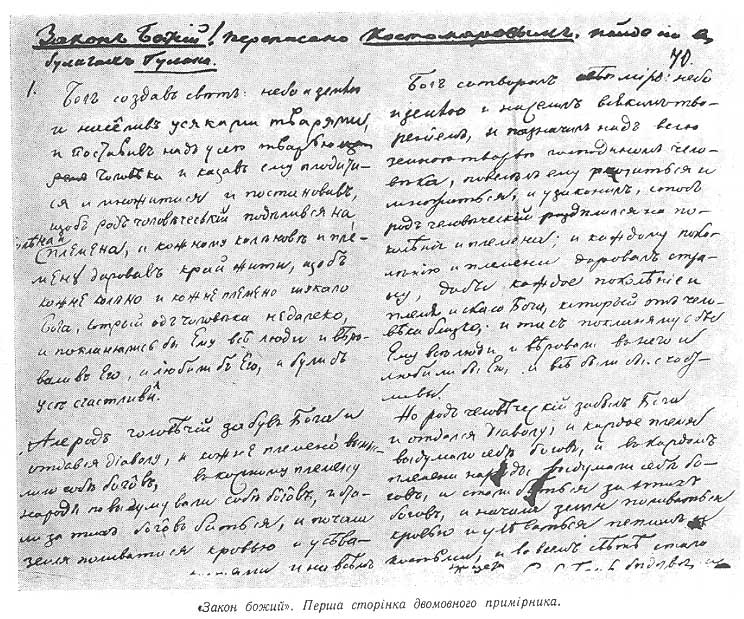 Законъ Божій! переписано Костомаровымъ, найдено въ
бумагахъ Гулака.
70.
1.
Богъ создавъ свѣтъ: небо и землю
и населивъ усякими тварями,
и поставивъ надъ усею тварью
чоловѣка и казавъ ему плодити-
ся и множитися и постановивъ,
щобъ родъ чоловѣческій подѣлився на
колѣна и
племена, и кожному колѣновѣ и пле-
мену даровавъ край жити, щобъ
кожне колѣно и кожне племено шукало
Бога, котрый одъ чоловѣка недалеко,
и покланялись бы Ему всѣ люди и вѣро-
вали въ Его, и любили бъ Его, и були бъ
усѣ счастливи.
Але родъ чоловѣчій забувъ Бога и
отдався діаволу, а кожне племено вымы-
лило собѣ богôвъ, въ кожному племену
народы повыдумували собѣ богôвъ, и ста-
ли за тихъ богôвъ биться, и почала
земля поливатися кровью и усѣва-
и на всѣмъ
Богъ сотворилъ міръ: небо
и землю и населилъ всякими тво-
реніями, и назначилъ надъ всею
земною тварью господиномъ чело-
вѣка, повелѣлъ ему родиться и
множиться, и узаконилъ, чтобъ
родъ человѣческій раздѣлился на по-
колѣнія и племена; и каждому поко-
лѣнію и племени даровалъ стра-
ну, дабы каждое поколѣніе и
племя искало Бога, который отъ чело-
вѣка близко: и тѣмъ поклонялись бы
Ему всѣ люди и вѣровали въ него и
любили бъ Его и всѣ были бы счаст-
ливы.
Но родъ человѣческій забылъ Бога
и отдался діаволу, и каждое племя
выдумало себѣ боговъ, и въ каждомъ
племени народы выдумали себѣ бо-
говъ, и стали биться за этихъ
боговъ, и начала земля поливаться
кровью и усѣваться пепломъ и
костьми, и во всемъ свѣтѣ стало
«Закон божий». Перша сторінка двомовного примірника.